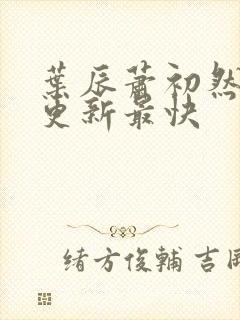 葉辰蕭初然
更新最快
緒方俊輔 吉岡